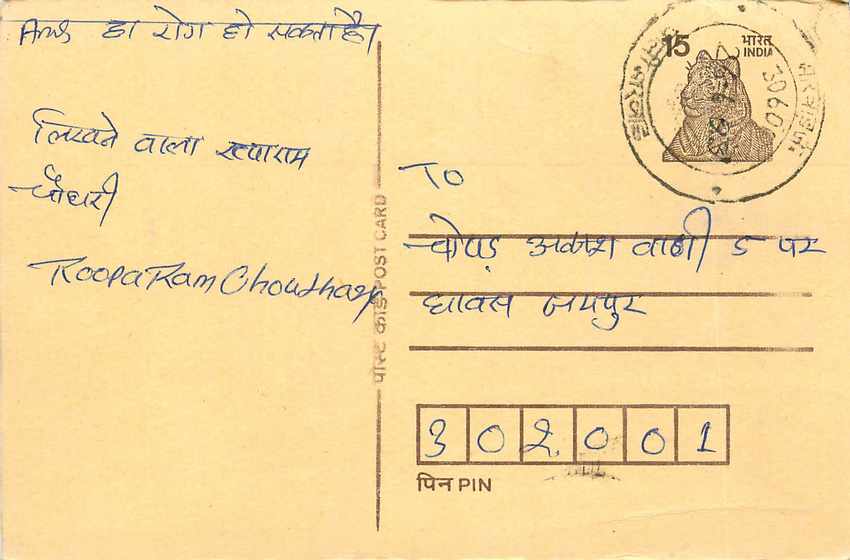 Ans हा रोग हो सकता है।
लिखने वाला रूपाराम
चौधरी
Roopa Ram Choudhary
पोस्ट कार्ड POST CARD
15
भारत
INDIA
30601
TO
चोपड़ आकाश वाणी 5 पर
धावस जयपुर
302001
पिन PIN